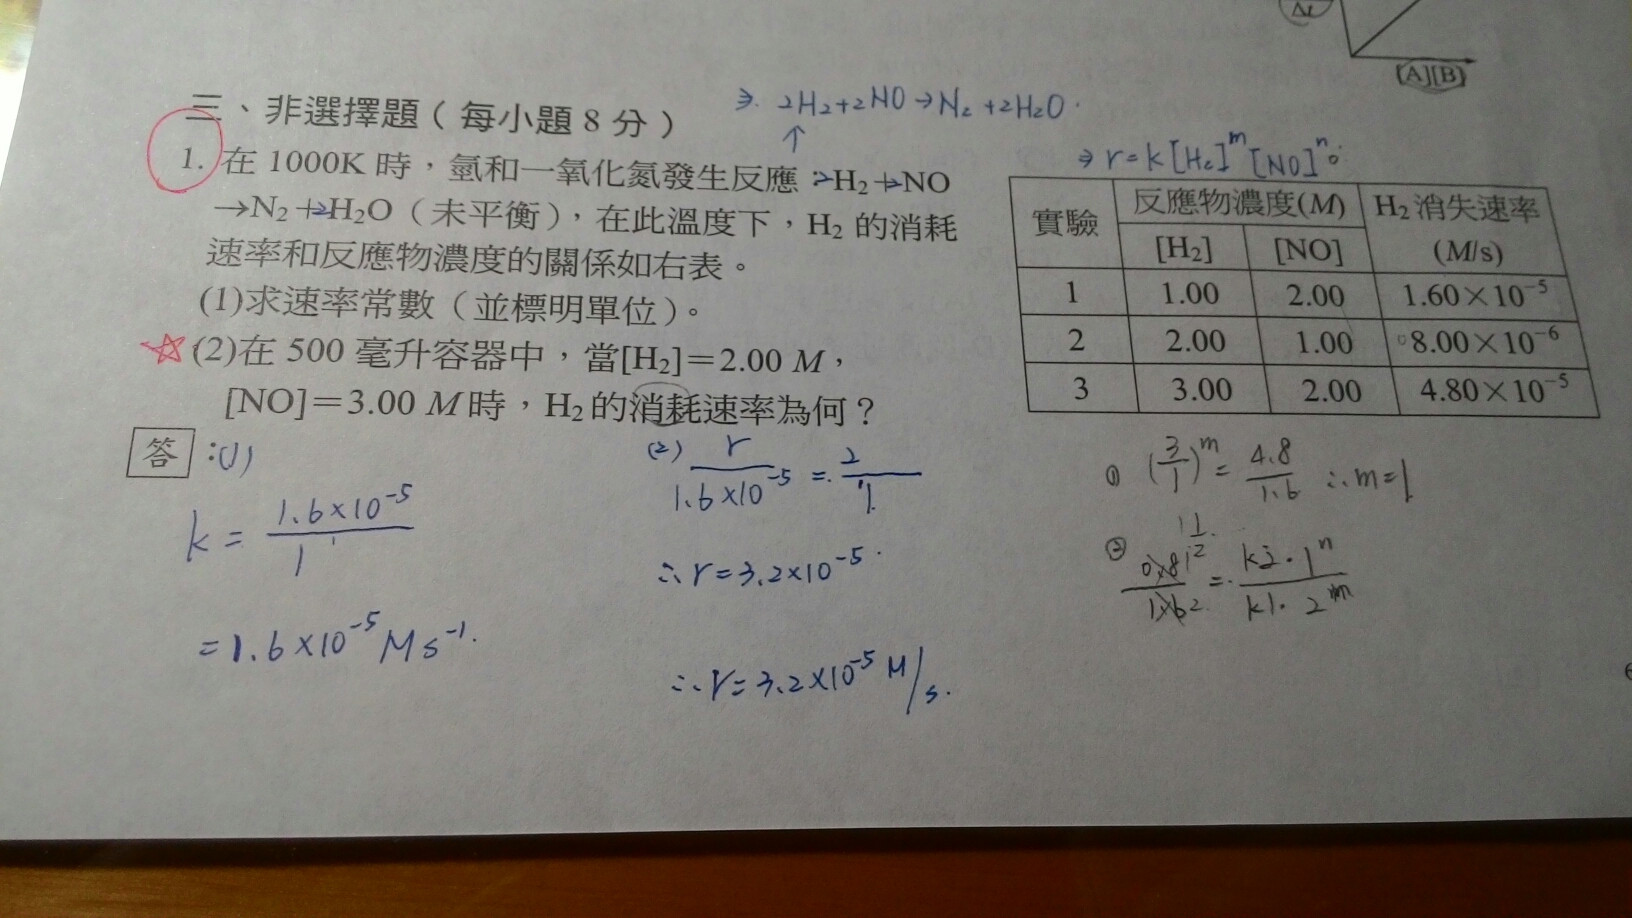 Δt
[A][B]
三、非選擇題（每小題8分）
⇒. 2H₂+2NO→N₂+2H₂O.
↑
⇒ r=k[H₂]ᵐ[NO]ⁿ。
1. 在 1000K 時，氫和一氧化氮發生反應：2H₂+2NO
→N₂+2H₂O（未平衡），在此溫度下，H₂ 的消耗
速率和反應物濃度的關係如右表。
(1)求速率常數（並標明單位）。
☆(2)在 500 毫升容器中，當[H₂]＝2.00 M，
[NO]＝3.00 M時，H₂的消耗速率為何？
實驗 反應物濃度(M) H₂消失速率
[H₂] [NO] (M/s)
1 1.00 2.00 1.60×10⁻⁵
2 2.00 1.00 8.00×10⁻⁶
3 3.00 2.00 4.80×10⁻⁵
答：(1)
k = 1.6×10⁻⁵ / 1
= 1.6×10⁻⁵ M s⁻¹.
(2) r / 1.6×10⁻⁵ = 2 / 1
∴ r=3.2×10⁻⁵.
∴ r=3.2×10⁻⁵ M/s.
① (3/1)ᵐ = 4.8/1.6 ∴m=1
② = k2·1ⁿ / k1·2